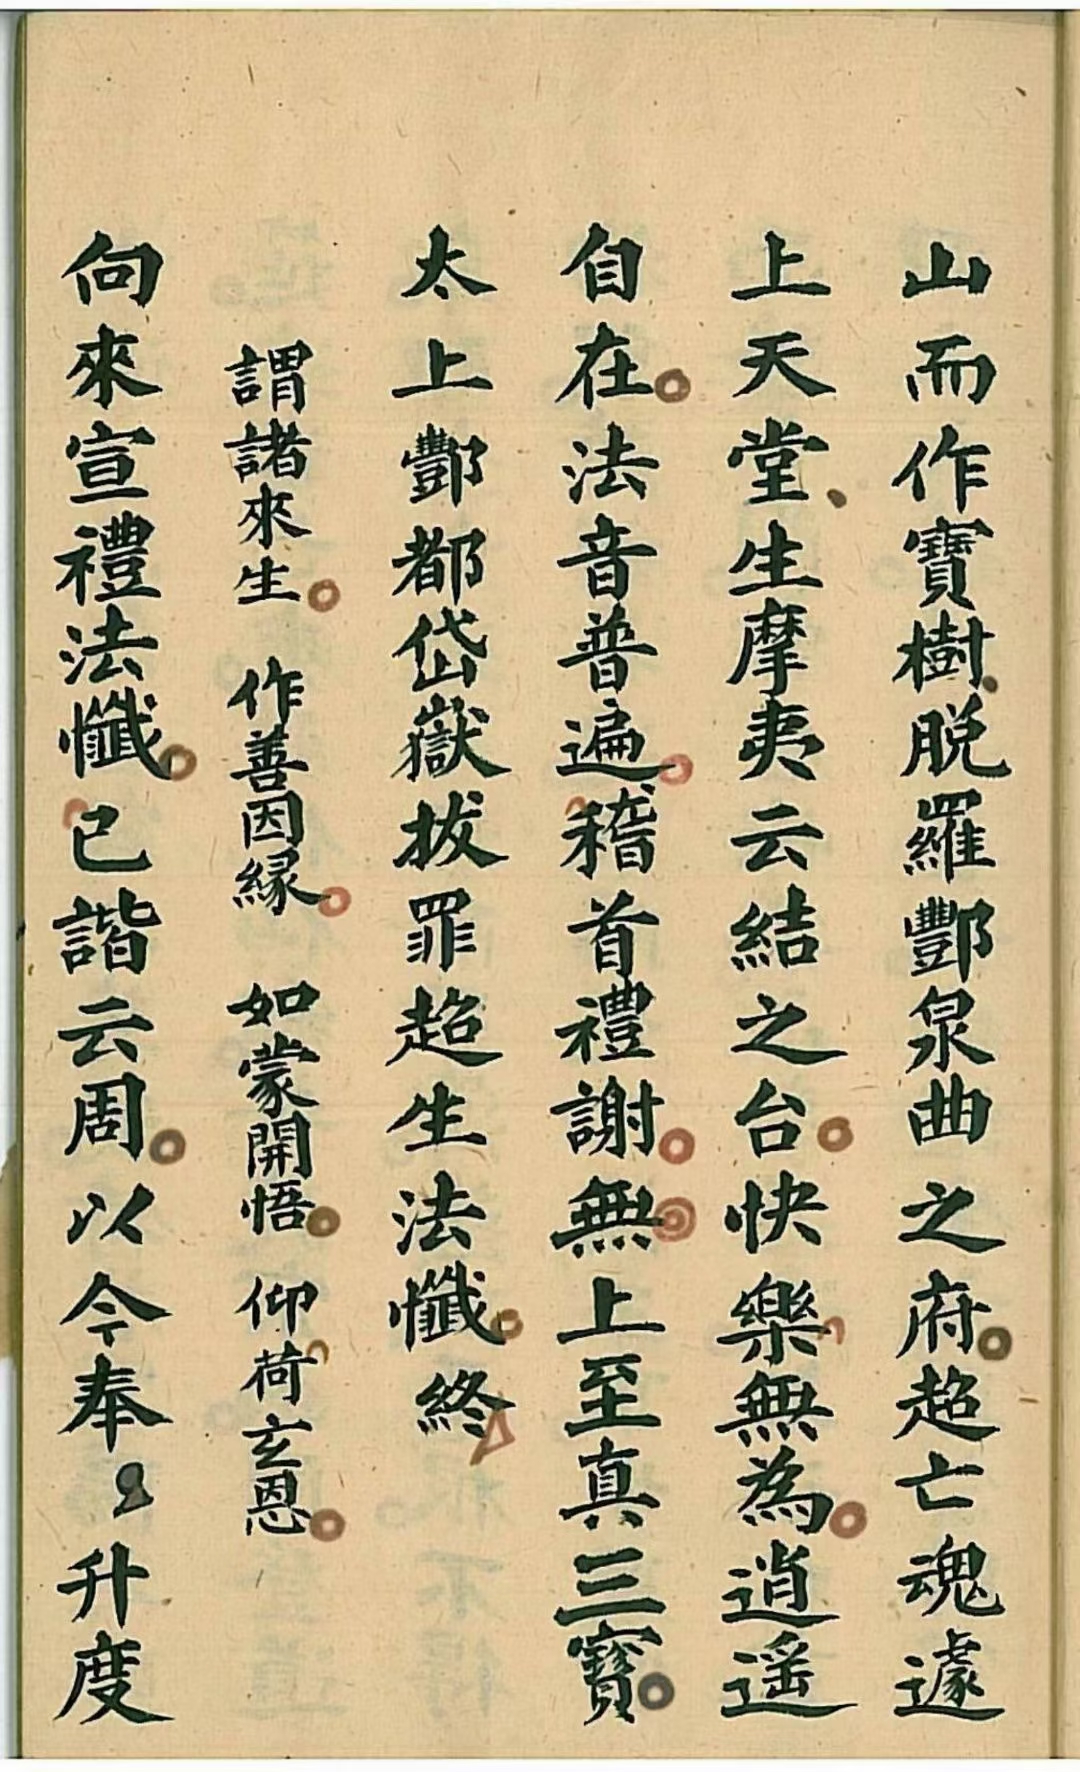 山而作寶樹脱羅酆泉曲之府超亡魂遽
上天堂生摩夷云結之台快樂無為逍遥
自在法音普遍稽首禮謝無上至真三寶
太上酆都岱嶽拔罪超生法懺終
謂諸來生 作善因緣 如蒙開悟 仰荷玄恩
向來宣禮法懺已諧云周以今奉升度